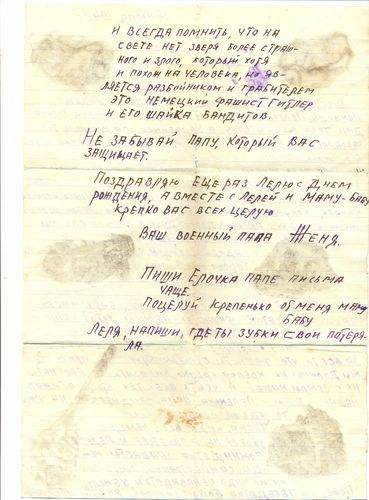 И ВСЕГДА ПОМНИТЬ, ЧТО НА
СВЕТЕ НЕТ ЗВЕРЯ БОЛЕЕ СТРАШ-
НОГО И ЗЛОГО, КОТОРЫЙ ХОТЯ
И ПОХОЖ НА ЧЕЛОВЕКА, НО ЯВ-
ЛЯЕТСЯ РАЗБОЙНИКОМ И ГРАБИТЕЛЕМ
ЭТО НЕМЕЦКИЙ ФАШИСТ ГИТЛЕР
И ЕГО ШАЙКА БАНДИТОВ.
НЕ ЗАБЫВАЙ ПАПУ, КОТОРЫЙ ВАС
ЗАЩИЩАЕТ.
ПОЗДРАВЛЯЮ ЕЩЕ РАЗ ЛЕЛЮ С ДНЕМ
РОЖДЕНИЯ, А ВМЕСТЕ С ЛЕЛЕЙ И МАМУ-БАБУ
КРЕПКО ВАС ВСЕХ ЦЕЛУЮ
ВАШ ВОЕННЫЙ ПАПА ЖЕНЯ.
ПИШИ ЕЛОЧКА ПАПЕ ПИСЬМА
ЧАЩЕ.
ПОЦЕЛУЙ КРЕПЕНЬКО ОТ МЕНЯ МАМУ
БАБУ
ЛЕЛЯ, НАПИШИ, ГДЕ ТЫ ЗУБКИ СВОИ ПОТЕРЯ-
ЛА.